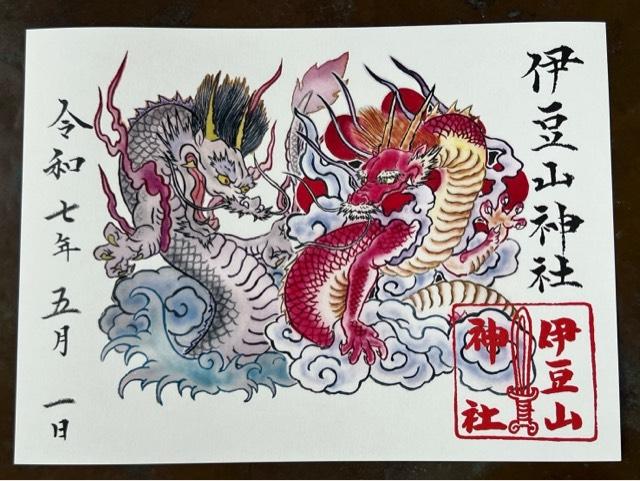 伊豆山神社
伊豆山
神社
令和七年五月一日